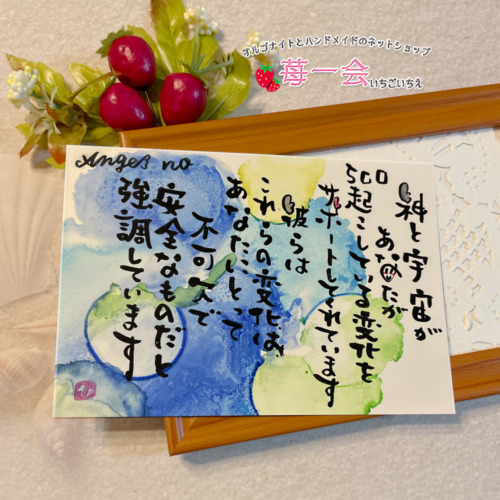 オルゴナイトとハンドメイドのネットショップ
苺一会 いちごいちえ
Anges no
500
神と宇宙が
あなたが
起こしている変化を
サポートしてくれています
彼らは
これらの変化は、
あなたにとって
不可欠で
安全なものだと
強調しています